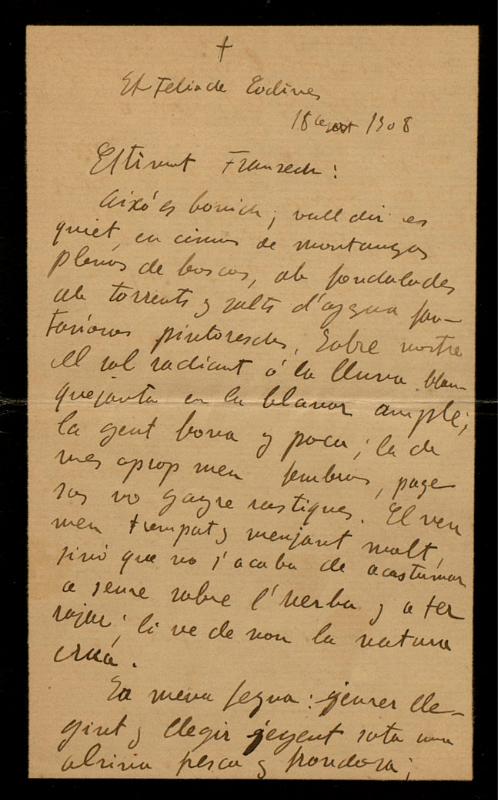 +
St Feliu de Codines
18 agost 1908
Estimat Francesch:
Això es bonich; vull dir es
quiet, en cimes de montanyas
plenas de boscos, ab fondalades
ab torrents y salts d'aygua fan-
tasiosos pintoreschs. Sobre nostre
el sol radiant ó la lluna blan-
quejanta en la blavor ample;
la gent bona y poca; la de
mes aprop meu sembros, page
sos no gayre rustiques. El veu
men trempat y menjant molt,
sinó que no s'acaba de acostumar
a seure sobre l'herba y a ter
rejar; li ve de nou la natura
crua.
La meva fegna: jeurer lle-
gint y llegir jeyent sota una
alzina fresca y frondosa;